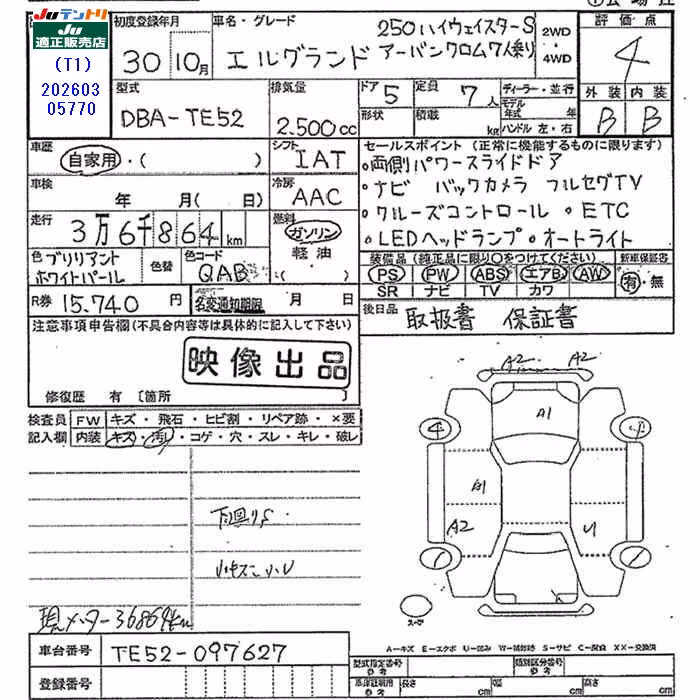 Ju テントリ
Ju 適正販売店
(T1)
202603
05770
初度登録年月
30 10月
車名・グレード
250ハイウェイスターS
エルグランド アーバンクロム7人乗り
2WD
・
4WD
評価点
4
外装 内装
B B
型式
DBA-TE52
排気量
2.500cc
ドア 5
形状
定員 7人
積載 kg
ディーラー・並行
モデル年式 年
ハンドル 左・右
車歴 自家用・( )
シフト IAT
車検 年 月( 日)
冷房 AAC
走行 3万6千864km
燃料 ガソリン
軽油
( )
色 ブリリアント
ホワイトパール
色替
色コード QAB
R券 15.740円
名変通知期限 月 日
セールスポイント (正常に機能するものに限ります)
・両側パワースライドドア
・ナビ バックカメラ フルセグTV
・クルーズコントロール ・ETC
・LEDヘッドランプ ・オートライト
装備品 (純正品に限り○をつけてください)
PS PW ABS エアB AW
SR ナビ TV カワ
新車保証書
有・無
後日品 取扱書 保証書
注意事項申告欄 (不具合内容等は具体的に記入して下さい)
映像出品
修復歴 有 〔箇所 〕
検査員記入欄
FW キズ・飛石・ヒビ割・リペア跡・×要
内装 キズ・汚・コゲ・穴・スレ・キレ・破レ
下廻りS
現メーター36864km
A2 A2
A1
4
A1
A2
U
スペア
A-キズ E-エクボ U-凹み W-補修跡 S-サビ C-腐食 XX-交換済
車台番号 TE52-097627
登録番号
型式指定番号 参考
類別区分番号 参考
車庫証明用 参考
長さ cm
幅 cm
高さ cm